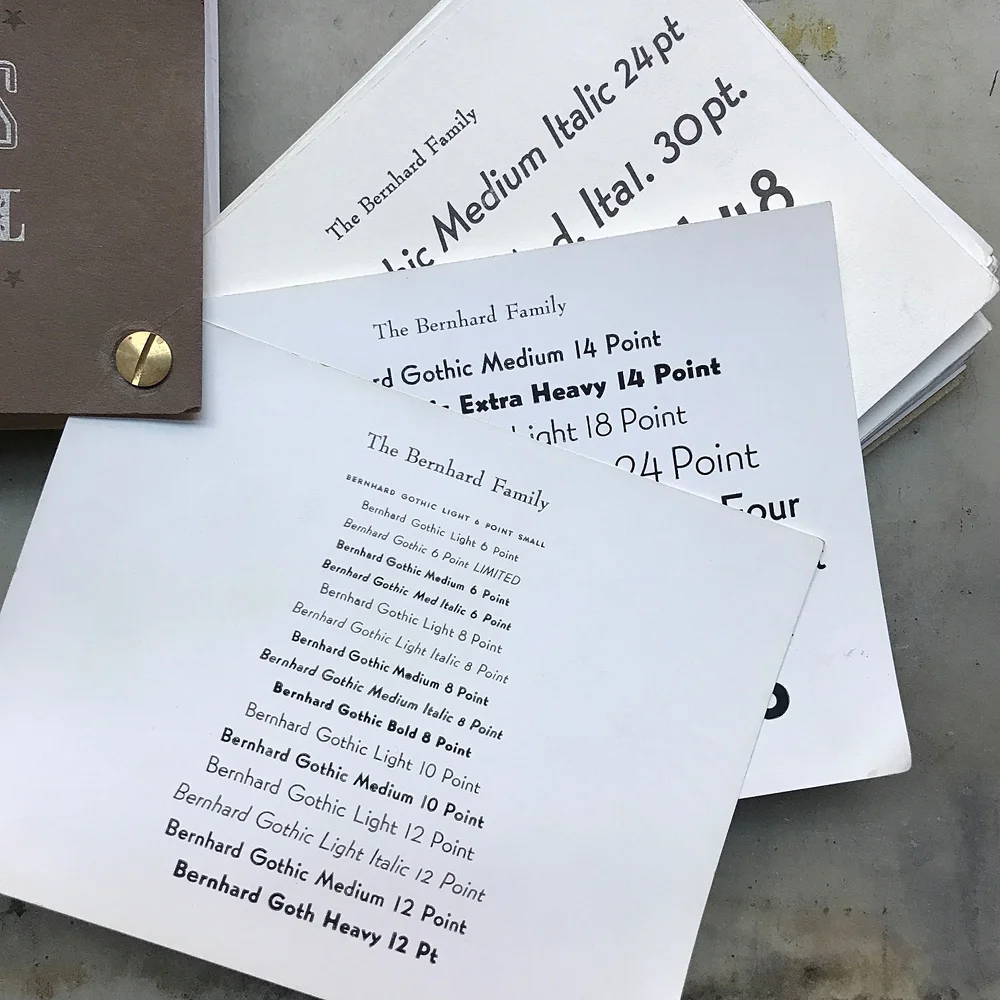 S
L
The Bernhard Family
hic Medium Italic 24 pt
d. Ital. 30 pt.
48
The Bernhard Family
rd Gothic Medium 14 Point
Extra Heavy 14 Point
Light 18 Point
24 Point
Four
The Bernhard Family
BERNHARD GOTHIC LIGHT 6 POINT SMALL
Bernhard Gothic Light 6 Point
Bernhard Gothic 6 Point LIMITED
Bernhard Gothic Medium 6 Point
Bernhard Gothic Med Italic 6 Point
Bernhard Gothic Light 8 Point
Bernhard Gothic Light Italic 8 Point
Bernhard Gothic Medium 8 Point
Bernhard Gothic Medium Italic 8 Point
Bernhard Gothic Bold 8 Point
Bernhard Gothic Light 10 Point
Bernhard Gothic Medium 10 Point
Bernhard Gothic Light 12 Point
Bernhard Gothic Light Italic 12 Point
Bernhard Gothic Medium 12 Point
Bernhard Goth Heavy 12 Pt